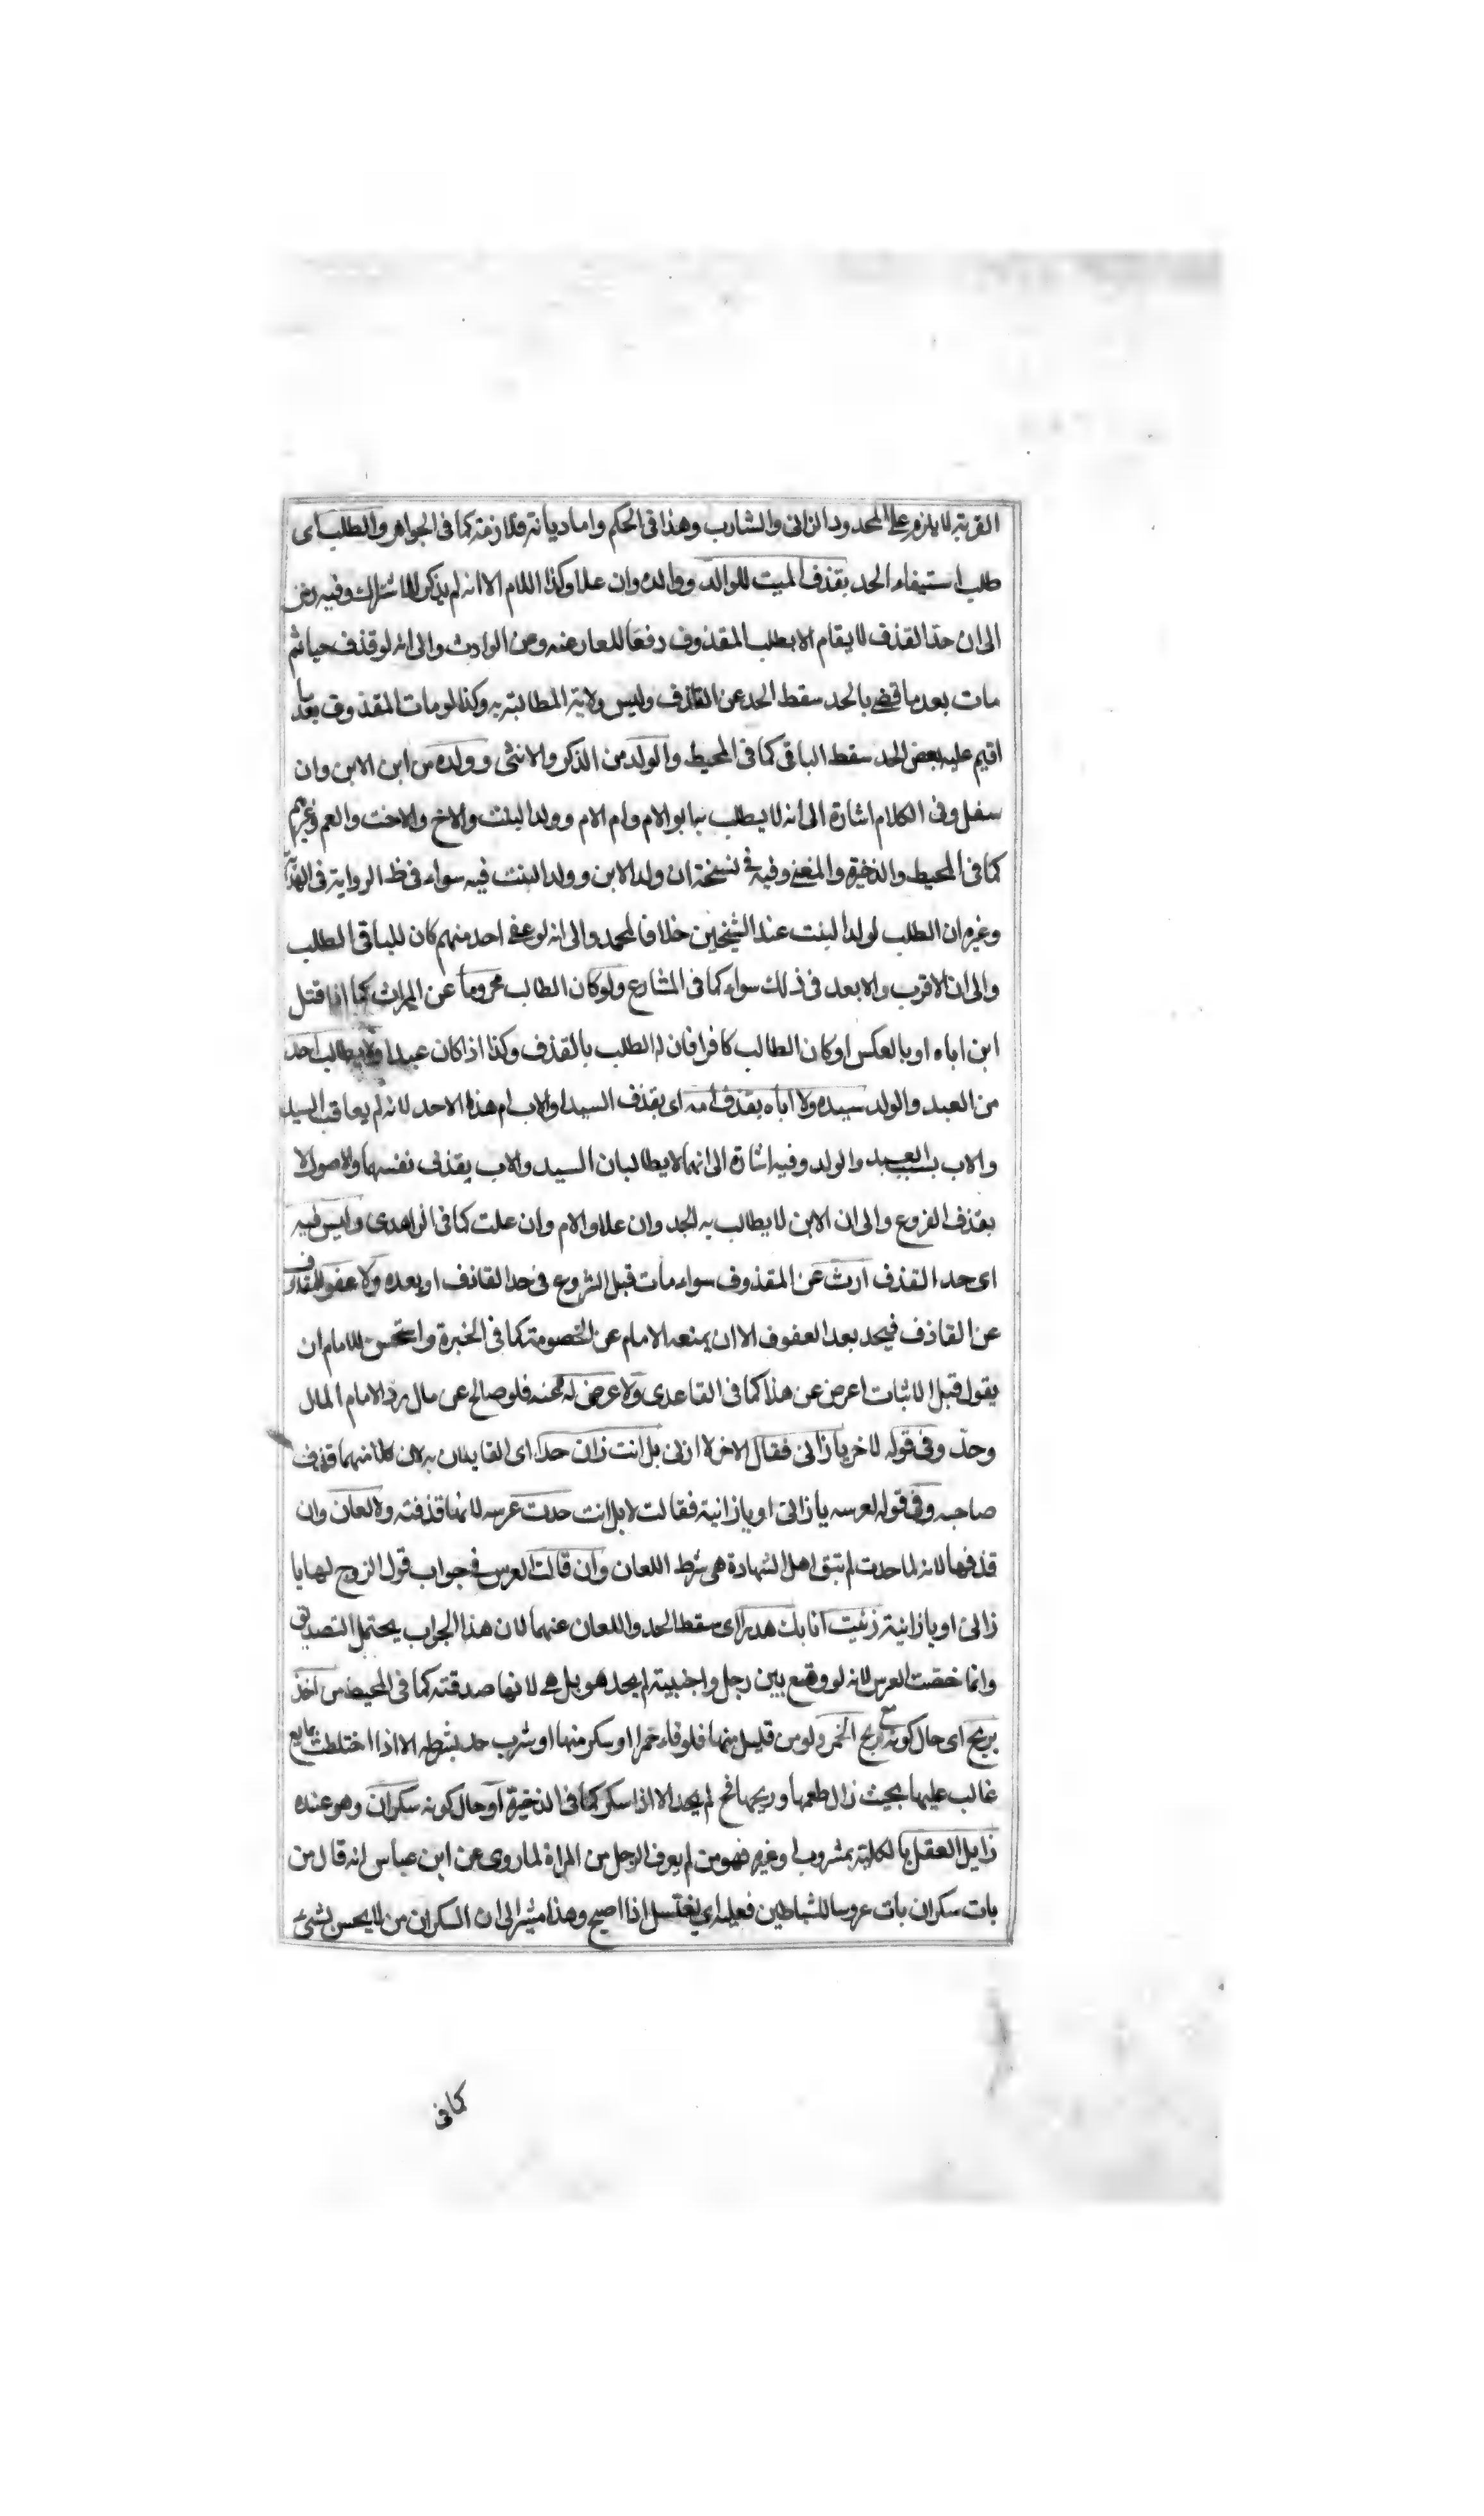 القربة لا يلزم على المحدود الزانى والشارب وهذا فى الحكم واما ديانة فلازمة كما فى الجواهر والطلب اى
طلب استيفاء الحد بقذف الميت للوالد ووالده وان علا وكذا اللام الا انه لم يذكر للاشتراك وفيه رمز
الى ان حد القذف لا يقام الا بطلب المقذوف دفعا للعار عنه وعن الوارث والى انه لو قذف حيا ثم
مات بعد ما قضى بالحد سقط الحد عن القاذف وليس ولاية المطالبة به وكذا لو مات المقذوف بعد ما
اقيم عليه بعض الحد سقط الباقى كما فى المحيط والولد من الذكر والانثى وولده من ابن الابن وان
سفل وفى الكلام اشارة الى انه لا يطلب به ابو الام وام الام وولد البنت والاخ والاخت والعم وغيرهم
كما فى المحيط والذخيرة والمغنى وفيه فى نسخة ان ولد الابن وولد البنت فيه سواء فى ظ الرواية فى الهداية
وغيره ان الطلب لولد البنت عند الشيخين خلافا لمحمد والى انه لو عفى احد منهم كان للباقى الطلب
والى ان الاقرب والابعد فى ذلك سواء كما فى المشارع ولو كان الطالب محروما عن الميراث كما اذا قتل
ابن اباه او بالعكس او كان الطالب كافرا فان له الطلب بالقذف وكذا اذا كان عبدا ولا يطالب احد
من العبد والولد سيده ولا اباه بقذف امه اى بقذف السيد او الاب ام هذا الاحد لانه لم يعاقب السيد
والاب بسبب العبد والولد وفيه اشارة الى انهما لا يطالبان السيد والاب بقذف نفسهما والاصول لا
بقذف الفروع والى ان الابن لا يطالب به الجد وان علا والام وان علت كما فى الزاهدى وليس فيه
اى حد القذف ارث عن المقذوف سواء مات قبل الشروع فى حد القاذف او بعده ولا عفو للمقذوف
عن القاذف فيحد بعد العفو الا ان يمنعه الامام عن الخصومة كما فى الخبرة واستحسن للامام ان
يقول قبل الاثبات اعرض عن هذا كما فى القاعدى ولا عوض له عنه فلو صالح عن مال رد الامام المال
وحد وفى قوله لاخر يا زانى فقال الاخر لا ازنى بل انت زان حدا اى القايلان به لان كلا منهما قذف
صاحبه وفى قوله لعرسه يا زانى او يا زانية فقالت لا بل انت حدت عرسه لانها قذفته ولا لعان وان
قذفها لانه لما حدت لم تبق اهل الشهادة هى شرط اللعان وان قالت العرس فى جواب قول الزوج لها يا
زانى او يا زانية زنيت انا بك هدر اى سقط الحد واللعان عنهما لان هذا الجواب يحتمل التصديق
وانما خصت العرس لانه لو وقع بين رجل واجنبية لم يحد هو بل هى لانها صدقته كما فى المحيط من اخذ
بريح اى حال كونه مع ريح الخمر ولو من قليل منها فلو قاء خمرا او سكر منها او شرب حد بشرطه الا اذا اختلطت بمايع
غالب عليها بحيث زال طعمها وريحها فح لم يحد الا اذا سكر كما فى الذخيرة او حال كونه سكران وهو عنده
زايل العقل بالكلية بمشروب او غيره فهو من لم يعرف الرجل من المراة لما روى عن ابن عباس انه قال من
بات سكران بات عروسا للشياطين فعليه اى يغتسل اذا اصبح وهذا مشير الى ان السكران من لا يحس بشئ
كما فى